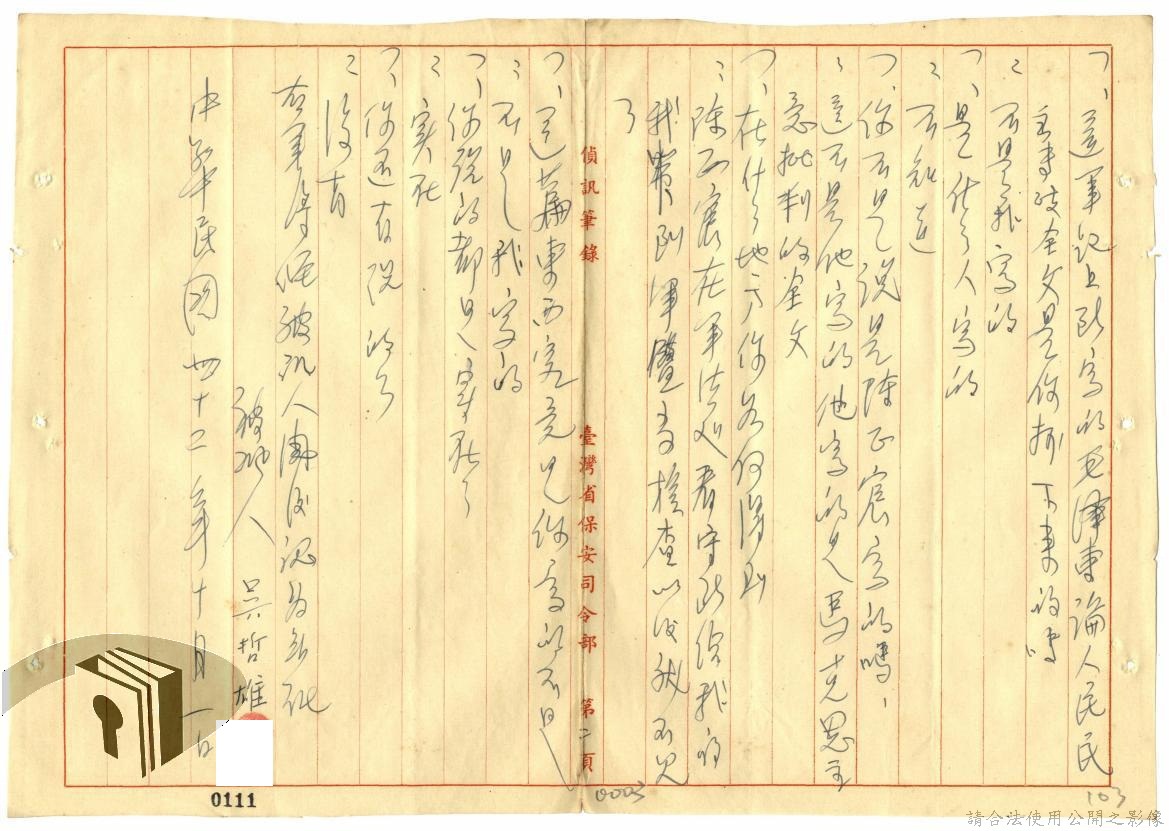 這筆記上所寫的毛澤東論人民民
主專政全文是你抄下來的嗎
不是我寫的
是什么人寫的
不知道
你不是說是陳正宸寫的嗎
這不是他寫的他寫的是馬克思主
意批判的全文
在什么地方你如何得到
陳正宸在軍法処看守所給我的
我帶到軍監
了
偵訊筆錄
臺灣省保安司令部
第二頁
這篇東西究竟是你寫的不是
不是我寫的
你說的都是實在
實在
你還有說的
沒有
右筆錄經被訊人閱後認為無訛
被訊人 吳哲雄
中華民國四十二年十月一日
0111
0003
103
請合法使用公開之影像